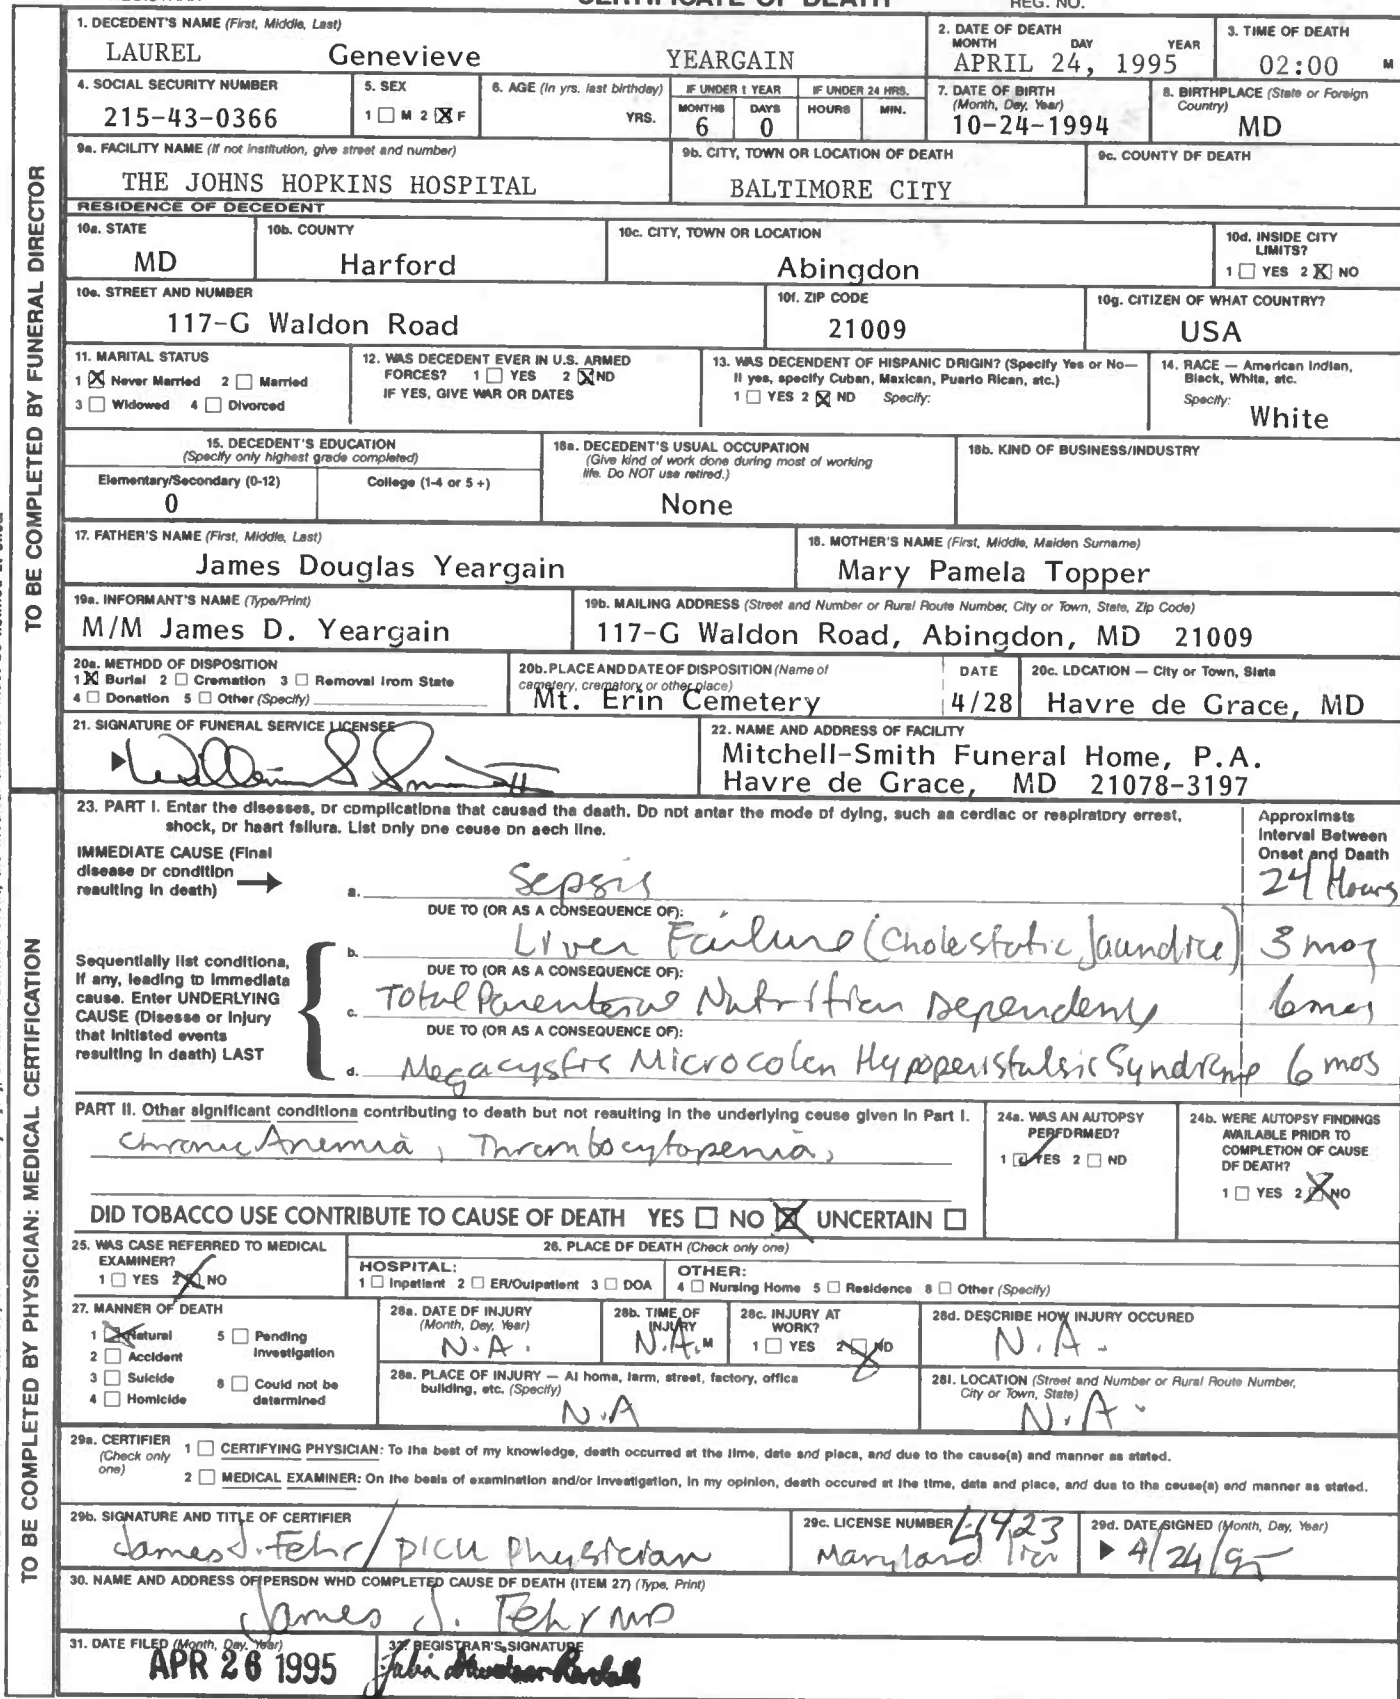 CERTIFICATE OF DEATH
REG. NO.
TO BE COMPLETED BY FUNERAL DIRECTOR
1. DECEDENT'S NAME (First, Middle, Last)
LAUREL Genevieve YEARGAIN
2. DATE OF DEATH
MONTH DAY YEAR
APRIL 24, 1995
3. TIME OF DEATH
02:00 M
4. SOCIAL SECURITY NUMBER
215-43-0366
5. SEX
1 ☐ M 2 ☒ F
6. AGE (In yrs. last birthday)
YRS.
IF UNDER 1 YEAR
MONTHS DAYS
6 0
IF UNDER 24 HRS.
HOURS MIN.
7. DATE OF BIRTH
(Month, Day, Year)
10-24-1994
8. BIRTHPLACE (State or Foreign
Country)
MD
9a. FACILITY NAME (If not institution, give street and number)
THE JOHNS HOPKINS HOSPITAL
9b. CITY, TOWN OR LOCATION OF DEATH
BALTIMORE CITY
9c. COUNTY DF DEATH
RESIDENCE OF DECEDENT
10a. STATE
MD
10b. COUNTY
Harford
10c. CITY, TOWN OR LOCATION
Abingdon
10d. INSIDE CITY
LIMITS?
1 ☐ YES 2 ☒ NO
10e. STREET AND NUMBER
117-G Waldon Road
10f. ZIP CODE
21009
10g. CITIZEN OF WHAT COUNTRY?
USA
11. MARITAL STATUS
1 ☒ Never Married 2 ☐ Married
3 ☐ Widowed 4 ☐ Divorced
12. WAS DECEDENT EVER IN U.S. ARMED
FORCES? 1 ☐ YES 2 ☒ ND
IF YES, GIVE WAR OR DATES
13. WAS DECENDENT OF HISPANIC DRIGIN? (Specify Yes or No—
II yes, specify Cuban, Maxican, Puarto Rican, atc.)
1 ☐ YES 2 ☒ ND Specify:
14. RACE — American Indian,
Black, Whita, atc.
Specify:
White
15. DECEDENT'S EDUCATION
(Specify only highest grade completed)
Elementary/Secondary (0-12)
0
College (1-4 or 5 +)
18a. DECEDENT'S USUAL OCCUPATION
(Give kind of work done during most of working
life. Do NOT use retired.)
None
18b. KIND OF BUSINESS/INDUSTRY
17. FATHER'S NAME (First, Middle, Last)
James Douglas Yeargain
18. MOTHER'S NAME (First, Middle, Maiden Surname)
Mary Pamela Topper
19a. INFORMANT'S NAME (Type/Print)
M/M James D. Yeargain
19b. MAILING ADDRESS (Street and Number or Rural Route Number, City or Town, State, Zip Code)
117-G Waldon Road, Abingdon, MD 21009
20a. METHDD OF DISPOSITION
1 ☒ Burlal 2 ☐ Cremation 3 ☐ Removal Irom State
4 ☐ Donation 5 ☐ Other (Specify)
20b. PLACE AND DATE OF DISPOSITION (Name of
cemetery, crematory or other place)
Mt. Erin Cemetery
DATE
4/28
20c. LDCATION — City or Town, Slata
Havre de Grace, MD
21. SIGNATURE OF FUNERAL SERVICE LICENSEE
22. NAME AND ADDRESS OF FACILITY
Mitchell-Smith Funeral Home, P.A.
Havre de Grace, MD 21078-3197
TO BE COMPLETED BY PHYSICIAN: MEDICAL CERTIFICATION
23. PART I. Enter the diseases, Dr cDmplicationa that causad tha daath. DD nDt antar the mode Df dying, such aa cerdlac or reapiratDry errest,
shock, Dr haart failura. List Dnly Dne ceuse Dn aech line.
Approximsts
Interval Between
Onset and Daath
IMMEDIATE CAUSE (Final
disease Dr cDndition
reaulting In death)
a. Sepsis 24 Hours
DUE TO (OR AS A CONSEQUENCE OF):
Sequentially list conditiona,
if any, leading tD Immediata
cause. Enter UNDERLYING
CAUSE (Disesse or Injury
that Initisted events
resulting In daath) LAST
b. Liver Failure (Cholestatic Jaundice) 3 mos
DUE TO (OR AS A CONSEQUENCE OF):
c. Total Parenteral Nutrition Dependency 6 mos
DUE TO (OR AS A CONSEQUENCE OF):
d. Megacystis Microcolon Hypoperistalsis Syndrome 6 mos
PART II. Other significant conditiona contributing to death but not reaulting in the underlying ceuse given In Part I.
Chronic Anemia, Thrombocytopenia,
24a. WAS AN AUTOPSY
PERFDRMED?
1 ☑ YES 2 ☐ ND
24b. WERE AUTOPSY FINDINGS
AVAILABLE PRIOR TO
COMPLETION OF CAUSE
DF DEATH?
1 ☐ YES 2 ☒ NO
DID TOBACCO USE CONTRIBUTE TO CAUSE OF DEATH YES ☐ NO ☒ UNCERTAIN ☐
25. WAS CASE REFERRED TO MEDICAL
EXAMINER?
1 ☐ YES 2 ☒ NO
26. PLACE DF DEATH (Check only one)
HOSPITAL:
1 ☐ Inpatlant 2 ☐ ER/Oulpatlent 3 ☐ DOA
OTHER:
4 ☐ Nursing Home 5 ☐ Residence 8 ☐ Other (Specify)
27. MANNER OF DEATH
1 ☒ Natural 5 ☐ Pending
Investigation
2 ☐ Accident
3 ☐ Suicide 8 ☐ Could not be
determined
4 ☐ Homicide
28a. DATE DF INJURY
(Month, Day, Year)
N.A.
28b. TIME OF
INJURY
N.A. M
28c. INJURY AT
WORK?
1 ☐ YES 2 ☒ ND
28d. DESCRIBE HOW INJURY OCCURED
N.A.
28a. PLACE OF INJURY — Al homa, larm, street, factory, offica
building, etc. (Specify)
N.A
281. LOCATION (Street and Number or Rural Route Number,
City or Town, State)
N.A.
29a. CERTIFIER
(Check only
one)
1 ☐ CERTIFYING PHYSICIAN: To lha best of my knowledge, death occurred at the lime, date and placa, and due to the cause(a) and manner as atated.
2 ☐ MEDICAL EXAMINER: On lhe beals of examination and/or Investigation, In my opinion, death occured at lhe tlme, data and place, and dua to the ceuse(a) end manner as stated.
29b. SIGNATURE AND TITLE OF CERTIFIER
James J. Fehr / PICU Physician
29c. LICENSE NUMBER
Maryland
29d. DATE SIGNED (Month, Day, Year)
4/24/95
30. NAME AND ADDRESS OF PERSDN WHD COMPLETED CAUSE DF DEATH (ITEM 27) (Type, Print)
James J. Fehr MD
31. DATE FILED (Month, Day, Year)
APR 26 1995
32. REGISTRAR'S SIGNATURE